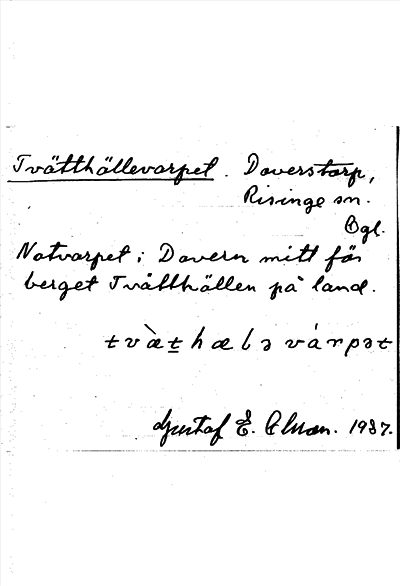 Tvätthällevarpet. Daverstorp,
Risinge sn.
Ögl.
Notvarpet i Davern mitt för
berget Tvätthällen på land.
tvæ̀t hælə várpət
Gustaf E. 1937.